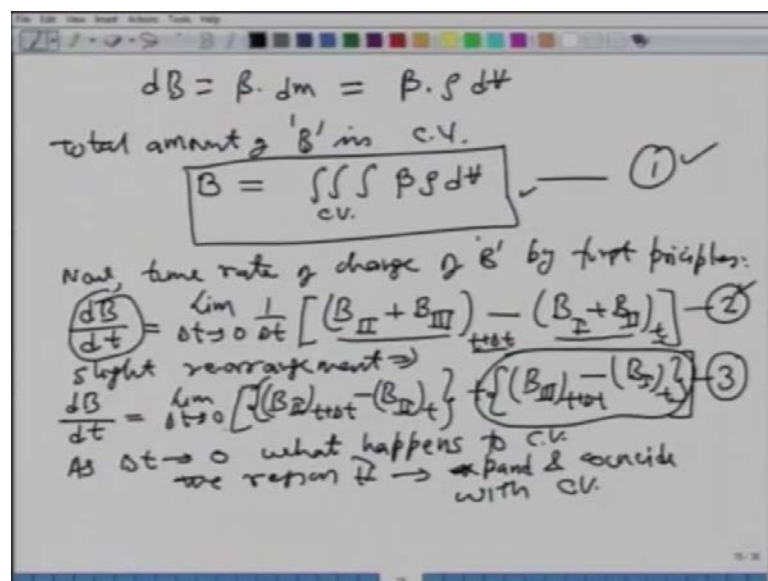 File Edit View Insert Actions Tools Help
dB = β. dm = β. ρ dV
total amount of 'B' in C.V.
B = ∫∫∫ βρdV — ① ✓
C.V.
Now, time rate of change of 'B' by first priciples:
dB/dt = Lim Δt→0 1/Δt [(B_II + B_III)_t+Δt − (B_I + B_II)_t] — ②
slight rearrangement ⇒
dB/dt = Lim Δt→0 [{(B_II)_t+Δt − (B_II)_t} + {(B_III)_t+Δt − (B_I)_t}] — ③
As Δt → 0 what happens to C.V.
the region II → expand & coincide
with CV.